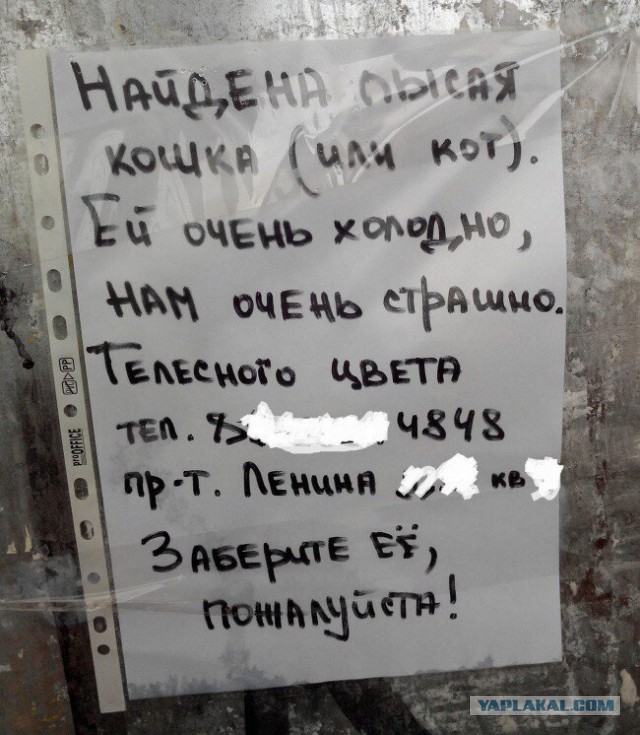 Найдена лысая
кошка (или кот).
Ей очень холодно,
нам очень страшно.
Телесного цвета
тел. 8 4848
пр-т. Ленина кв
Заберите её,
пожалуйста!
PP
proOFFICE
YAPLAKAL.COM